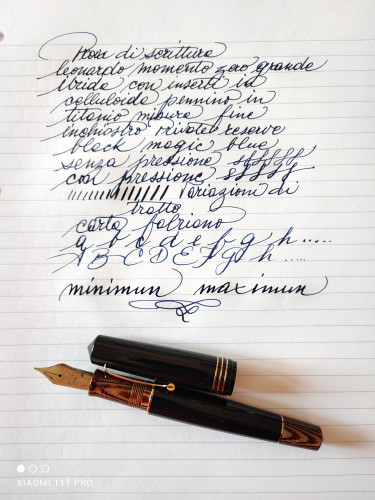 Prova di scrittura
leonardo momento zero grande
irida con inserti in
celluloide pennino in
titanio misura fine
inchiostro private reserve
black magic blue
senza pressione
con pressione
variazioni di
tratto
carta fabriano
a b c d e f g h .....
A B C D E F G h .....
minimun maximun
XIAOMI 11T PRO